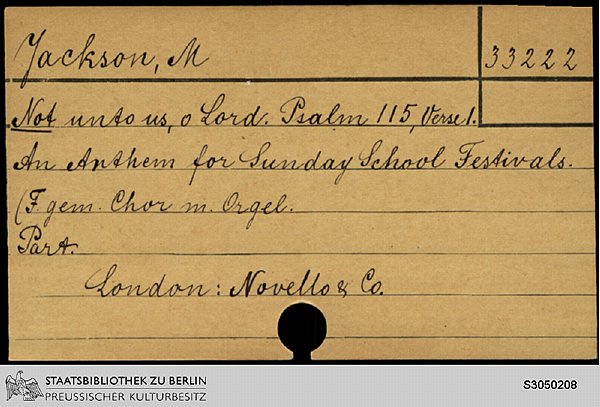 Jackson, M
33222
Not unto us, o Lord. Psalm 115, Verse 1.
An Anthem for Sunday School Festivals.
(F. gem. Chor m. Orgel.
Part.
London: Novello & Co.
STAATSBIBLIOTHEK ZU BERLIN
PREUSSISCHER KULTURBESITZ
S3050208